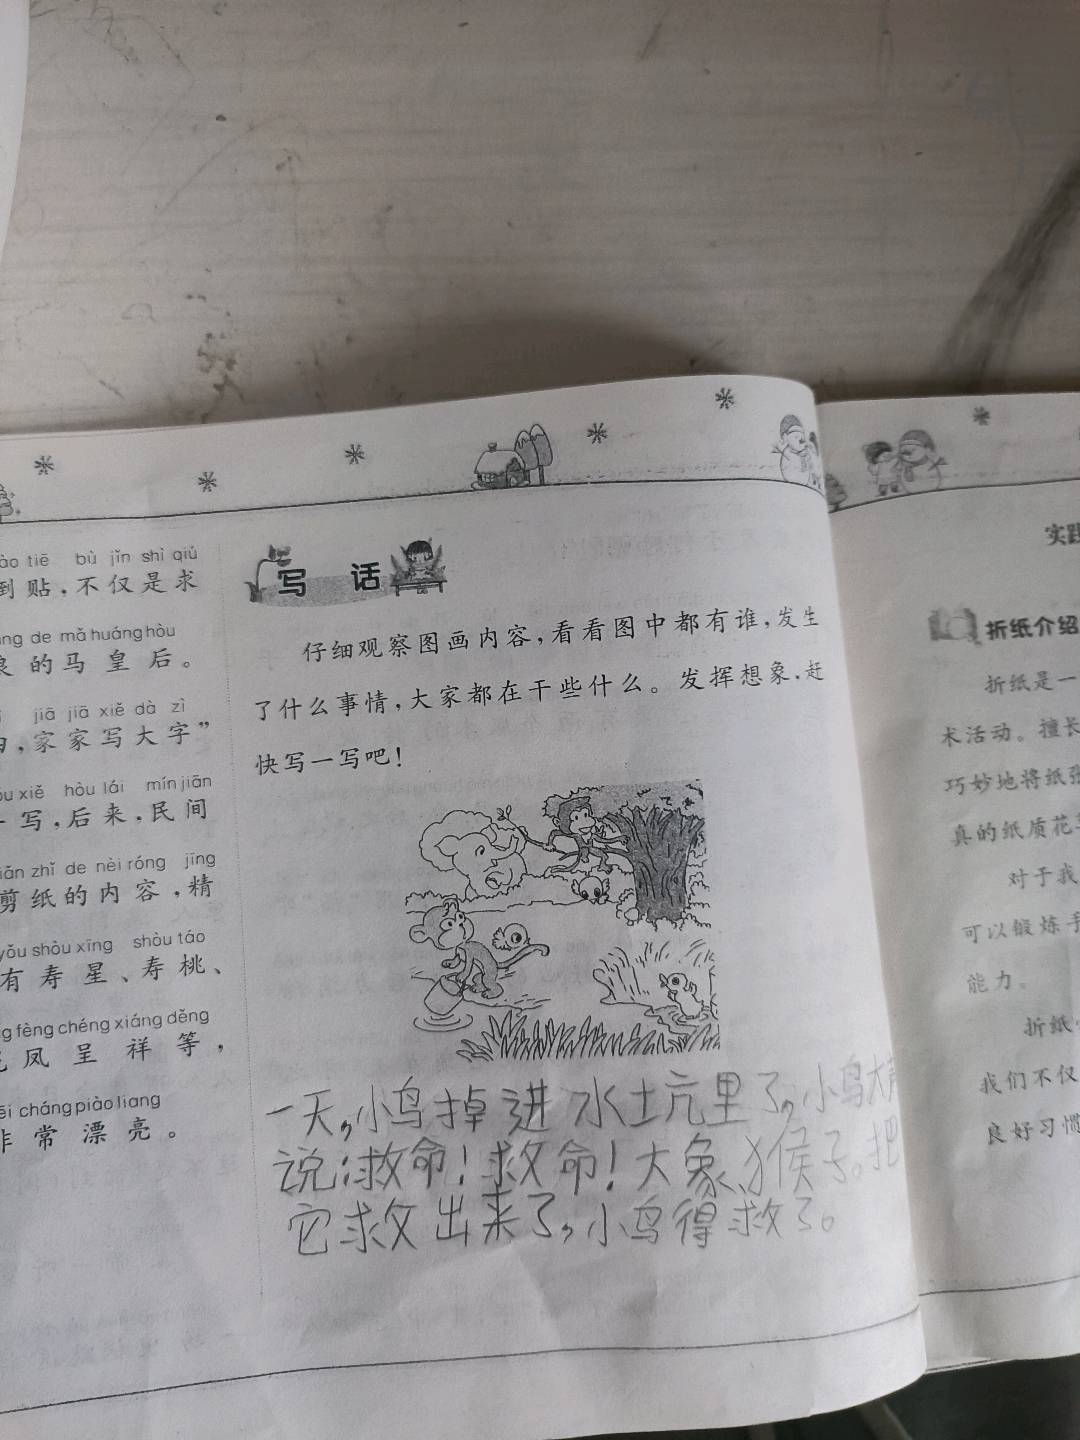 ào tiē bù jǐn shì qiú
到贴,不仅是求
ng de mǎ huáng hòu
良的马皇后。
jiā jiā xiě dà zì
,家家写大字”
òu xiě hòu lái mín jiān
一写,后来,民间
iǎn zhǐ de nèi róng jīng
剪纸的内容,精
yǒu shòu xīng shòu táo
有寿星、寿桃、
g fèng chéng xiáng děng
凤呈祥等,
ēi cháng piào liang
非常漂亮。
写话
仔细观察图画内容,看看图中都有谁,发生
了什么事情,大家都在干些什么。发挥想象,赶
快写一写吧!
一天,小鸟掉进水土亢里了,小鸟大声
说:救命!救命!大象、猴子。把
它救出来了,小鸟得救了。
实践
折纸介绍
折纸是一
术活动。擅长
巧妙地将纸张
真的纸质花
对于我
可以锻炼手
能力。
折纸
我们不仅
良好习惯